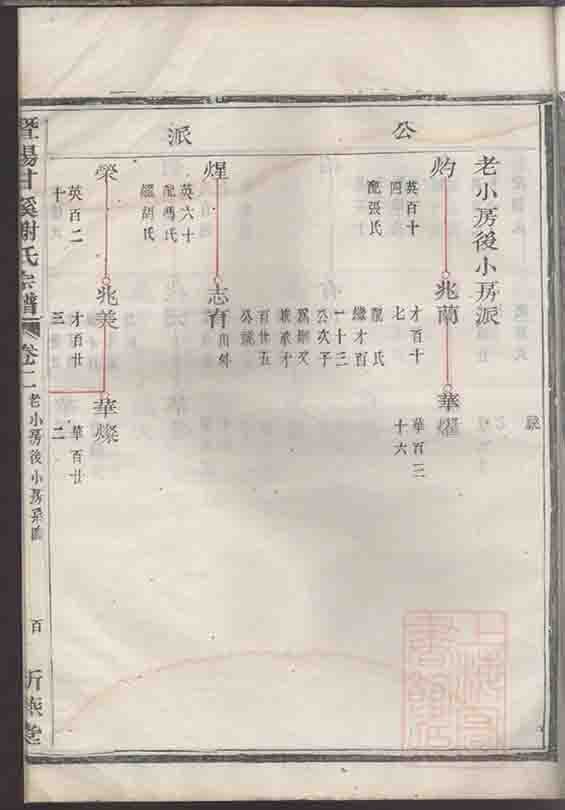 公
派
老小房後小房派
灼
英百十
四
配張氏
兆蘭
才百十
七
華燿
華百二
十六
煋
英六十
配馮氏
繼胡氏
志存
配氏
繼才百
一十三
公次子
兼承才
百廿五
榮
英百二
十
兆美
才百廿
三
華燦
華百廿
二
暨陽甘溪謝氏宗譜
卷二
老小房後小房系圖
百